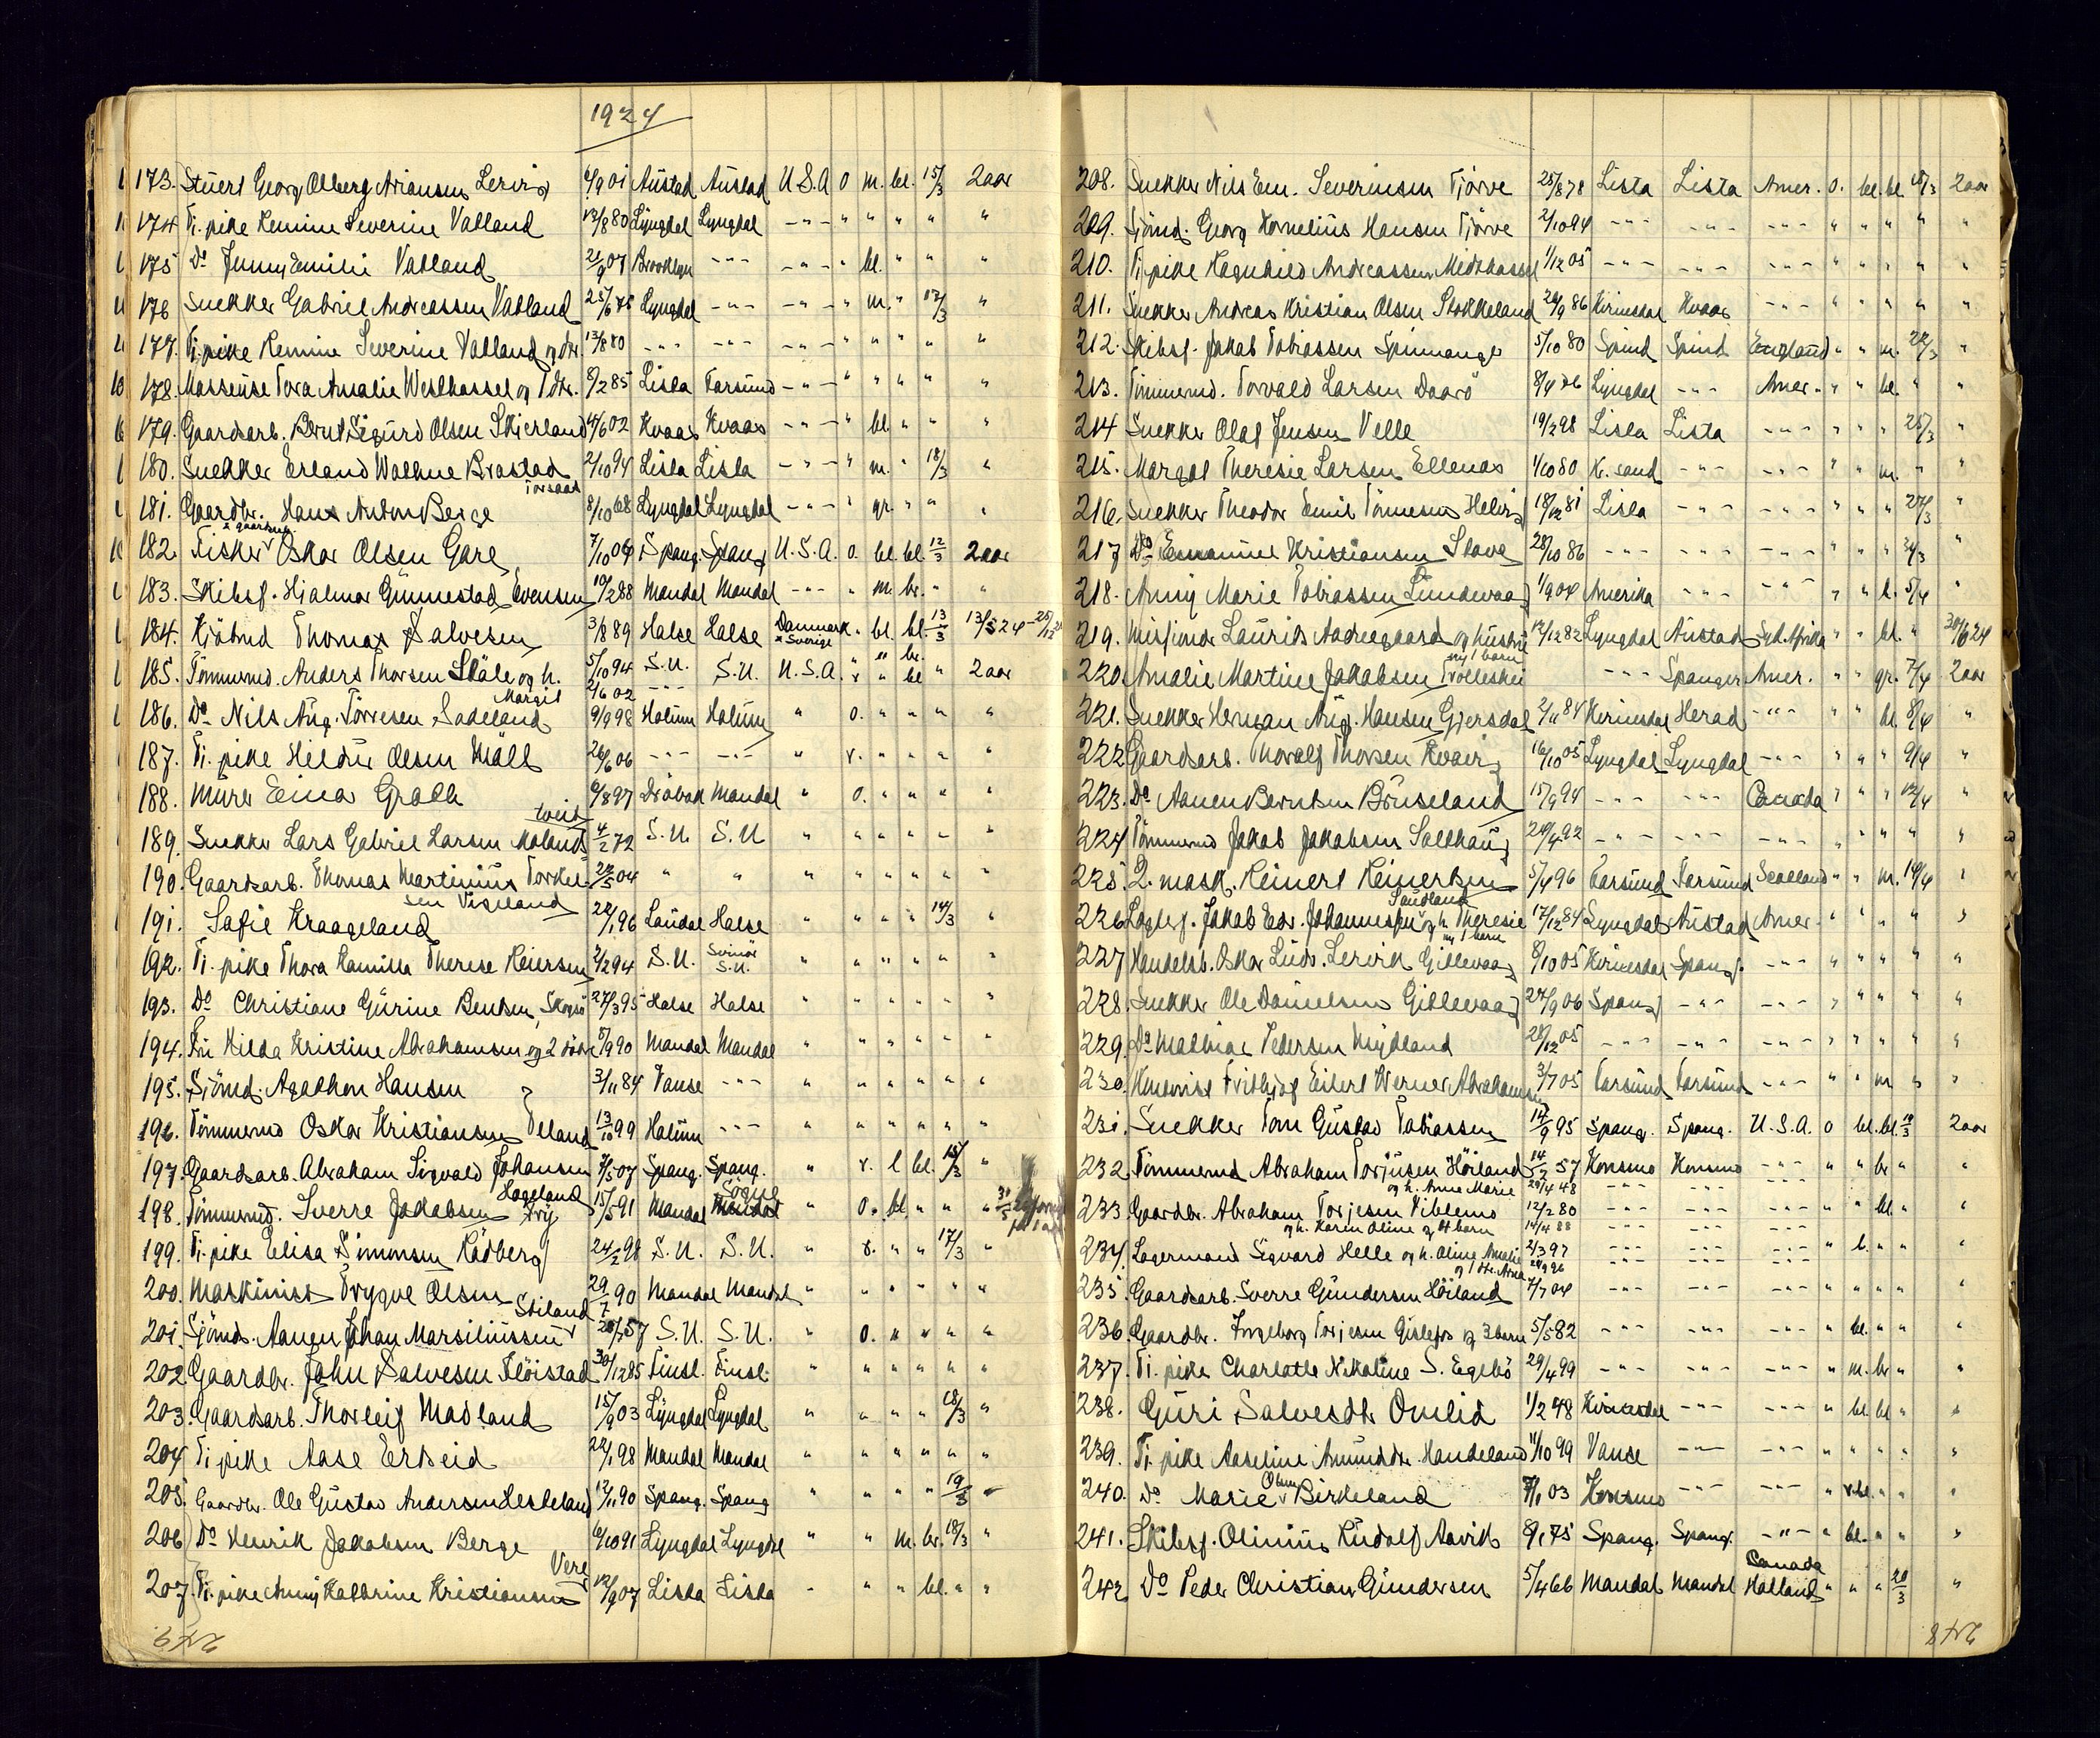 1924
173. Stuert Georg Olberg Ariansen Lervig 6/9 01 Austad Austad U.S.A o m. bl. 15/3 2 aar
174 Ti. pike Remine Severine Vatland 13/8 80 Lyngdal Lyngdal -"- " " " " "
175 Do Jenny Emilie Vatland 21/9 07 Brooklyn -"- -"- " bl. " " "
176 Snekker Gabriel Andreassen Vatland 25/6 78 Lyngdal -"- -"- " m. " 17/3 "
177. Ti. pike Remine Severine Vatland og dtr. 13/8 80 -"- -"- -"- " " " " "
178. Masseuse Tora Amalie Westhassel og 1 dtr. 8/2 85 Lista Farsund -"- " " " " "
179. Gaardsarb. Bernt Sigurd Olsen Skjerland 14/6 02 Kvaas Kvaas -"- " bl. " " "
180. Snekker Erland Wathne Brastad 2/10 94 Lista Lista -"- " m. " 18/3 "
181. Gaardbr. Hans Anton Berge 8/10 68 Lyngdal Lyngdal -"- " gr. " " "
182. Fisker Oskar Olsen Gare 7/10 04 Spang. Spang. U.S.A. o. bl. bl. 12/3 2 aar
183. Skibsf. Hjalmar Gunnestad Evensen 10/2 88 Mandal Mandal -"- " m. br. " "
184. Kjöbmd Thomas Salvesen 3/8 89 Halse Halse Danmark " bl. bl. 13/3 13/3 24 -
Sverige
185. Tömmermd. Anders Thorsen Ståle og h. 5/10 94 S.U. S.U. U.S.A. " " bl " 2 aar
Margit 2/6 02 -"-
186. Do Nils Aug. Torresen Sadeland 9/9 98 Holum Holum " o. " " " "
187. Ti. pike Hildur Olsen Mäll 26/6 06 -"- -"- " v. " " " "
188. Murer Einar Groth 6/8 97 Dröbak Mandal " o. " " " "
189. Snekker Lars Gabriel Larsen Moland 4/2 72 S.U. S.U " " " " " "
190. Gaardsarb. Thomas Martinius Torkel- 22/5 04 " " " " " " " "
sen Vigeland
191. Sofie Kraageland 22/1 96 Laudal Halse " " " " 14/3 "
192. Ti. pike Thora Kamilla Therese Reiersen 2/2 94 S.U. Svinör S.U. " " " " " "
193. Do Christiane Gurine Bentsen, Skogsö 27/3 95 Halse Halse " " " " " "
194. Fru Hilda Kristine Abrahamsen og 2 dötre 8/9 90 Mandal Mandal " " " " " "
195. Sjömd. Agathon Hansen 3/11 84 Vanse -"- " " " " " "
196. Tömmermd Oskar Kristiansen Ueland 13/10 99 Holum -"- " " " " " "
197. Gaardsarb. Abraham Sigvald Johansen 7/5 07 Spang. Spang. " v. l bl. 15/3 "
Hageland
198. Tömmermd. Sverre Jakobsen Try 15/5 91 Mandal Mandal Sögne " o. bl. " " "
199. Ti. pike Elisa Simonsen Rödberg 24/2 98 S.U. S.U. " v. " " 17/3 "
200. Maskinist Trygve Olsen 29/7 90 Mandal Mandal " " " " " "
201. Sjömd. Aanen Johan Marsiliussen Stiland 28/7 57 S.U. S.U. " o. " " " "
202. Gaardbr. John Salvesen Flöistad 30/12 85 Finsl. Finsl. " " " " " "
203. Gaardsarb. Thorleif Madland 15/9 03 Lyngdal Lyngdal " " " " 18/3 "
204 Ti. pike Aase Erkeid 22/1 98 Mandal Mandal " " " " " "
205. Gaardbr. Ole Gustav Andersen Lesteland 13/11 90 Spang. Spang " " " " 19/3 "
206 Do Henrik Jakobsen Berge 6/10 91 Lyngdal Lyngdal " " m. br. 18/3 "
207. Ti. pike Anny Kathrine Kristiansen Vere 12/9 07 Lista Lista " " " bl. " "
249.
208. Snekker Nils Em. Severinsen Tjörve 25/8 78 Lista Lista Amer. o. bl. bl 18/3 2 aar
209. Sjömd. Georg Kornelius Hansen Tjörve 2/10 94 -"- -"- -"- " " " " "
210. Ti. pike Ragnhild Andreassen Midthassel 1/12 05 -"- -"- -"- " " " " "
211. Snekker Andreas Kristian Olsen Stokkeland 29/9 86 Kvinesdal Kvaas -"- " " " " "
212. Skibsf. Jakob Tobiassen Spinnanger 5/10 80 Spind Spind England " " m. 22/3 "
213. Tömmermd. Torvald Larsen Daarö 8/4 06 Lyngdal -"- Amer. " " bl. " "
214 Snekker Olaf Jensen Velle 19/2 98 Lista Lista -"- " " " 25/3 "
215. Margot Theresie Larsen Ellenes 1/10 80 K. sand -"- -"- " " m. " "
216. Snekker Theodor Emil Tönnesen Helvig 18/12 81 Lista -"- -"- " " " 27/3 "
217 Do Emanuel Kristiansen Stave 28/10 86 -"- -"- -"- " " " 31/3 "
218. Anny Marie Tobiassen Lundevaag 1/9 04 Amerika -"- -"- " " b. 5/4 "
219. Misjonær Laurits Aadnegaard og hustru 12/12 82 Lyngdal Austad Syd. Afrika " " bl. " 30/6 24
og 1 barn
220. Amalie Martine Jakobsen Trölleskei -"- Spanger. Amer. " " gr. 7/4 2 aar
221. Snekker Herman Aug. Hansen Gjersdal 2/11 84 Kvinesdal Herad -"- " " bl. 8/4 "
222 Gaardsarb. Thoralf Thorsen Kvavig 16/10 05 Lyngdal Lyngdal -"- " " " 9/4 "
223. Do Aanen Berntsen Bruseland 15/9 94 -"- -"- Canada " " " 12/4 "
224 Tömmermd Jakob Jakobsen Salthaug 24/4 92 -"- -"- -"- " " " " "
225. 2. mask. Reinert Reinertsen 5/4 96 Farsund Farsund Scotland " " m. 14/4 "
226 Lagerf. Jakob Edv. Johannessen Sudland og h. Theresie 17/12 84 Lyngdal Austad Amer. " " " " "
og 1 barn
227 Handelsb. Oskar Ludv. Lervik Gitlevaag 8/10 05 Kvinesdal Spang. -"- " " " " "
228. Snekker Ole Danielsen Gitlevaag 24/9 06 Spang -"- -"- " " " " "
229. Do Mathias Pedersen Nydland 28/12 05 -"- -"- -"- " " " " "
230. Fritbjof Eilert Werner Abrahamsen 3/7 05 Farsund Farsund -"- " " m " "
231. Snekker Tom Gustav Tobiassen 14/9 95 Spang. Spang. U.S.A. o bl. bl. 19/3 2 aar
232 Tömmermd Abraham Torjusen Höiland 14/2 57 Konsmo Konsmo -"- " " br " "
og h. Anne Marie 29/4 48 -"- -"- -"-
233 Gaardbr. Abraham Torjesen Viblemo 12/2 80 -"- -"- -"- " " bl. " "
og h. Karen Oline og 4 barn 14/4 88 -"- -"- -"-
234. Lagermand Sigvard Helle og h. Oline Amalie 2/3 97 -"- -"- -"- " b. " " "
og 1 dtr. Anna 28/9 96 -"- -"- -"-
235 Gaardsarb. Sverre Gundersen Höiland 7/7 04 -"- -"- -"- " " " " "
236 Gaardbr. Ingeborg Torjesen Gislefos og 3 barn 5/5 82 -"- -"- -"- " bl. " " "
237. Ti. pike Charlotte Nikoline S. Egebö 29/4 99 -"- -"- -"- " m. br " "
238. Guri Salvesdtr Omlid 1/2 48 Kvinesdal -"- -"- " bl. bl " "
239. Ti. pike Aaseline Amundsdtr. Handeland 11/10 99 Vanse -"- -"- " " " " "
240. Do Marie Olsen Birkeland 7/1 03 Konsmo -"- -"- " v. bl. " " "
241. Skibsf. Olinius Rudolf Aavik 8/1 75 Spang. Spang. -"- " bl. " " "
242 Do Peder Christian Gundersen 5/4 66 Mandal Mandal Canada Halland " " " 20/3 "
248